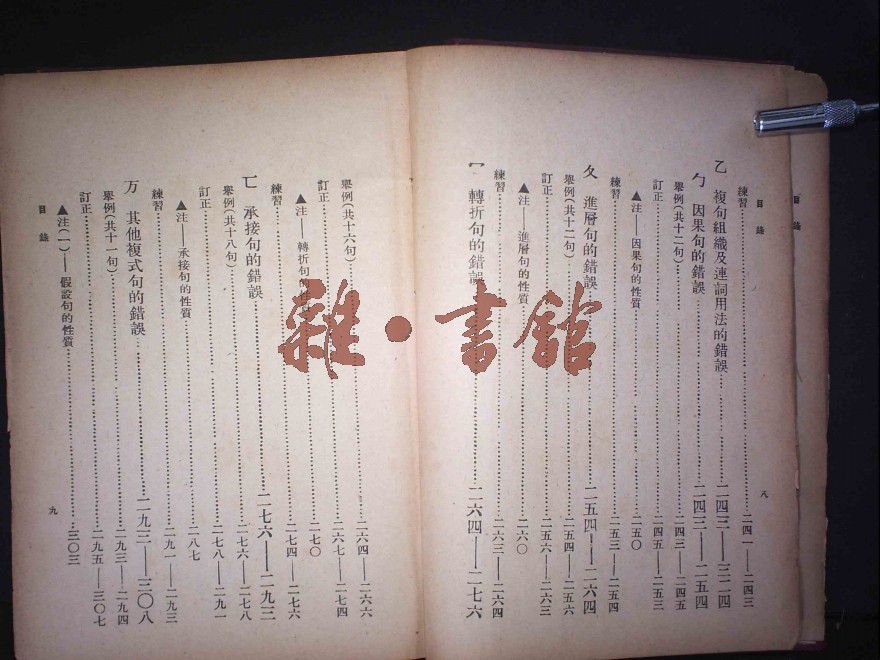 目錄
目錄 八
練習……二四一——二四三
乙 複句組織及連詞用法的錯誤……二四三——三二四
ㄅ 因果句的錯誤……二四三——二五四
舉例(共十二句)……二四三——二四五
訂正……二四五——二五三
▲注——因果句的性質……二五〇
練習……二五三——二五四
ㄆ 進層句的錯誤……二五四——二六四
舉例(共十二句)……二五四——二五六
訂正……二五六——二六三
▲注——進層句的性質……二六〇
練習……二六三——二六四
ㄇ 轉折句的錯誤……二六四——二七六
舉例(共十六句)……二六四——二六六
訂正……二六七——二七四
▲注——轉折句的性……二七〇
練習……二七四——二七六
ㄈ 承接句的錯誤……二七六——二九三
舉例(共十八句)……二七六——二七八
訂正……二七八——二九一
▲注——承接句的性質……二八七
練習……二九一——二九三
万 其他複式句的錯誤……二九三——三〇八
舉例(共十一句)……二九三——二九四
訂正……二九五——三〇七
▲注(一)——假設句的性質……三〇三
目錄 九
雜·書館